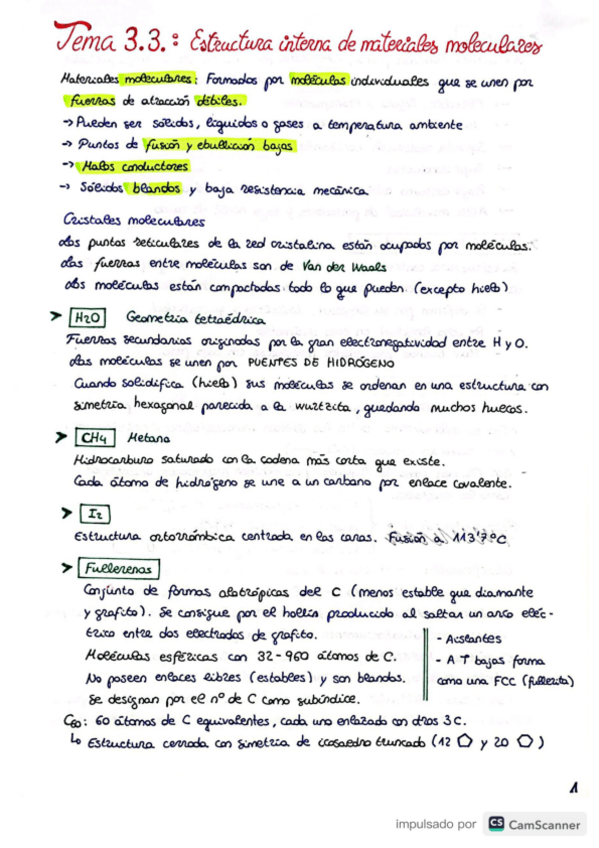 Tema 3.3.: Estructura interna de materiales moleculares
Materiales moleculares: Formados por moléculas individuales que se unen por
fuerzas de atracción débiles.
→ Pueden ser sólidos, líquidos o gases a temperatura ambiente
→ Puntos de fusión y ebullición bajas
→ Malos conductores
→ Sólidos blandos y baja resistencia mecánica
Cristales moleculares
Los puntos reticulares de la red cristalina están ocupados por moléculas.
Las fuerzas entre moléculas son de Van der Waals
Las moléculas están compactadas todo lo que pueden (excepto hielo)
➤ H2O Geometría tetraédrica
Fuerzas secundarias originadas por la gran electronegatividad entre H y O.
Las moléculas se unen por PUENTES DE HIDRÓGENO
Cuando solidifica (hielo) sus moléculas se ordenan en una estructura con
simetría hexagonal parecida a la wurtzita, quedando muchos huecos.
➤ CH4 Metano
Hidrocarburo saturado con la cadena más corta que existe.
Cada átomo de hidrógeno se une a un carbono por enlace covalente.
➤ I2
Estructura ortorrómbica centrada en las caras. Fusión a 113'7ºC
➤ Fullerenos
Conjunto de formas alotrópicas del C (menos estable que diamante
y grafito). Se consigue por el hollín producido al saltar un arco eléc-
trico entre dos electrodos de grafito.
Moléculas esféricas con 32-960 átomos de C.
No poseen enlaces libres (estables) y son blandos.
Se designan por el nº de C como subíndice.
- Aislantes
- A T bajas forma
como una FCC (fullerita)
C60: 60 átomos de C equivalentes, cada uno enlazado con otros 3 C.
↳ Estructura cerrada con simetría de icosaedro truncado (12 ⬠ y 20 ⬡)
1
impulsado por CS CamScanner